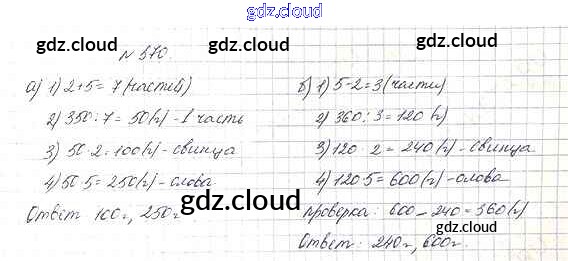 gdz.cloud
№ 370.
gdz.cloud
gdz.cloud
а) 1) 2+5=7 (частей)
2) 350:7=50(г)-1 часть
3) 50·2=100(г)-свинца
4) 50·5=250(г)-олова
Ответ 100г, 250г
б) 1) 5-2=3 (части)
2) 360:3=120 (г)
3) 120·2=240(г)-свинца
4) 120·5=600(г)-олова
проверка: 600-240=360(г)
Ответ: 240г, 600г.
gdz.cloud
gdz.cloud
gdz.cloud